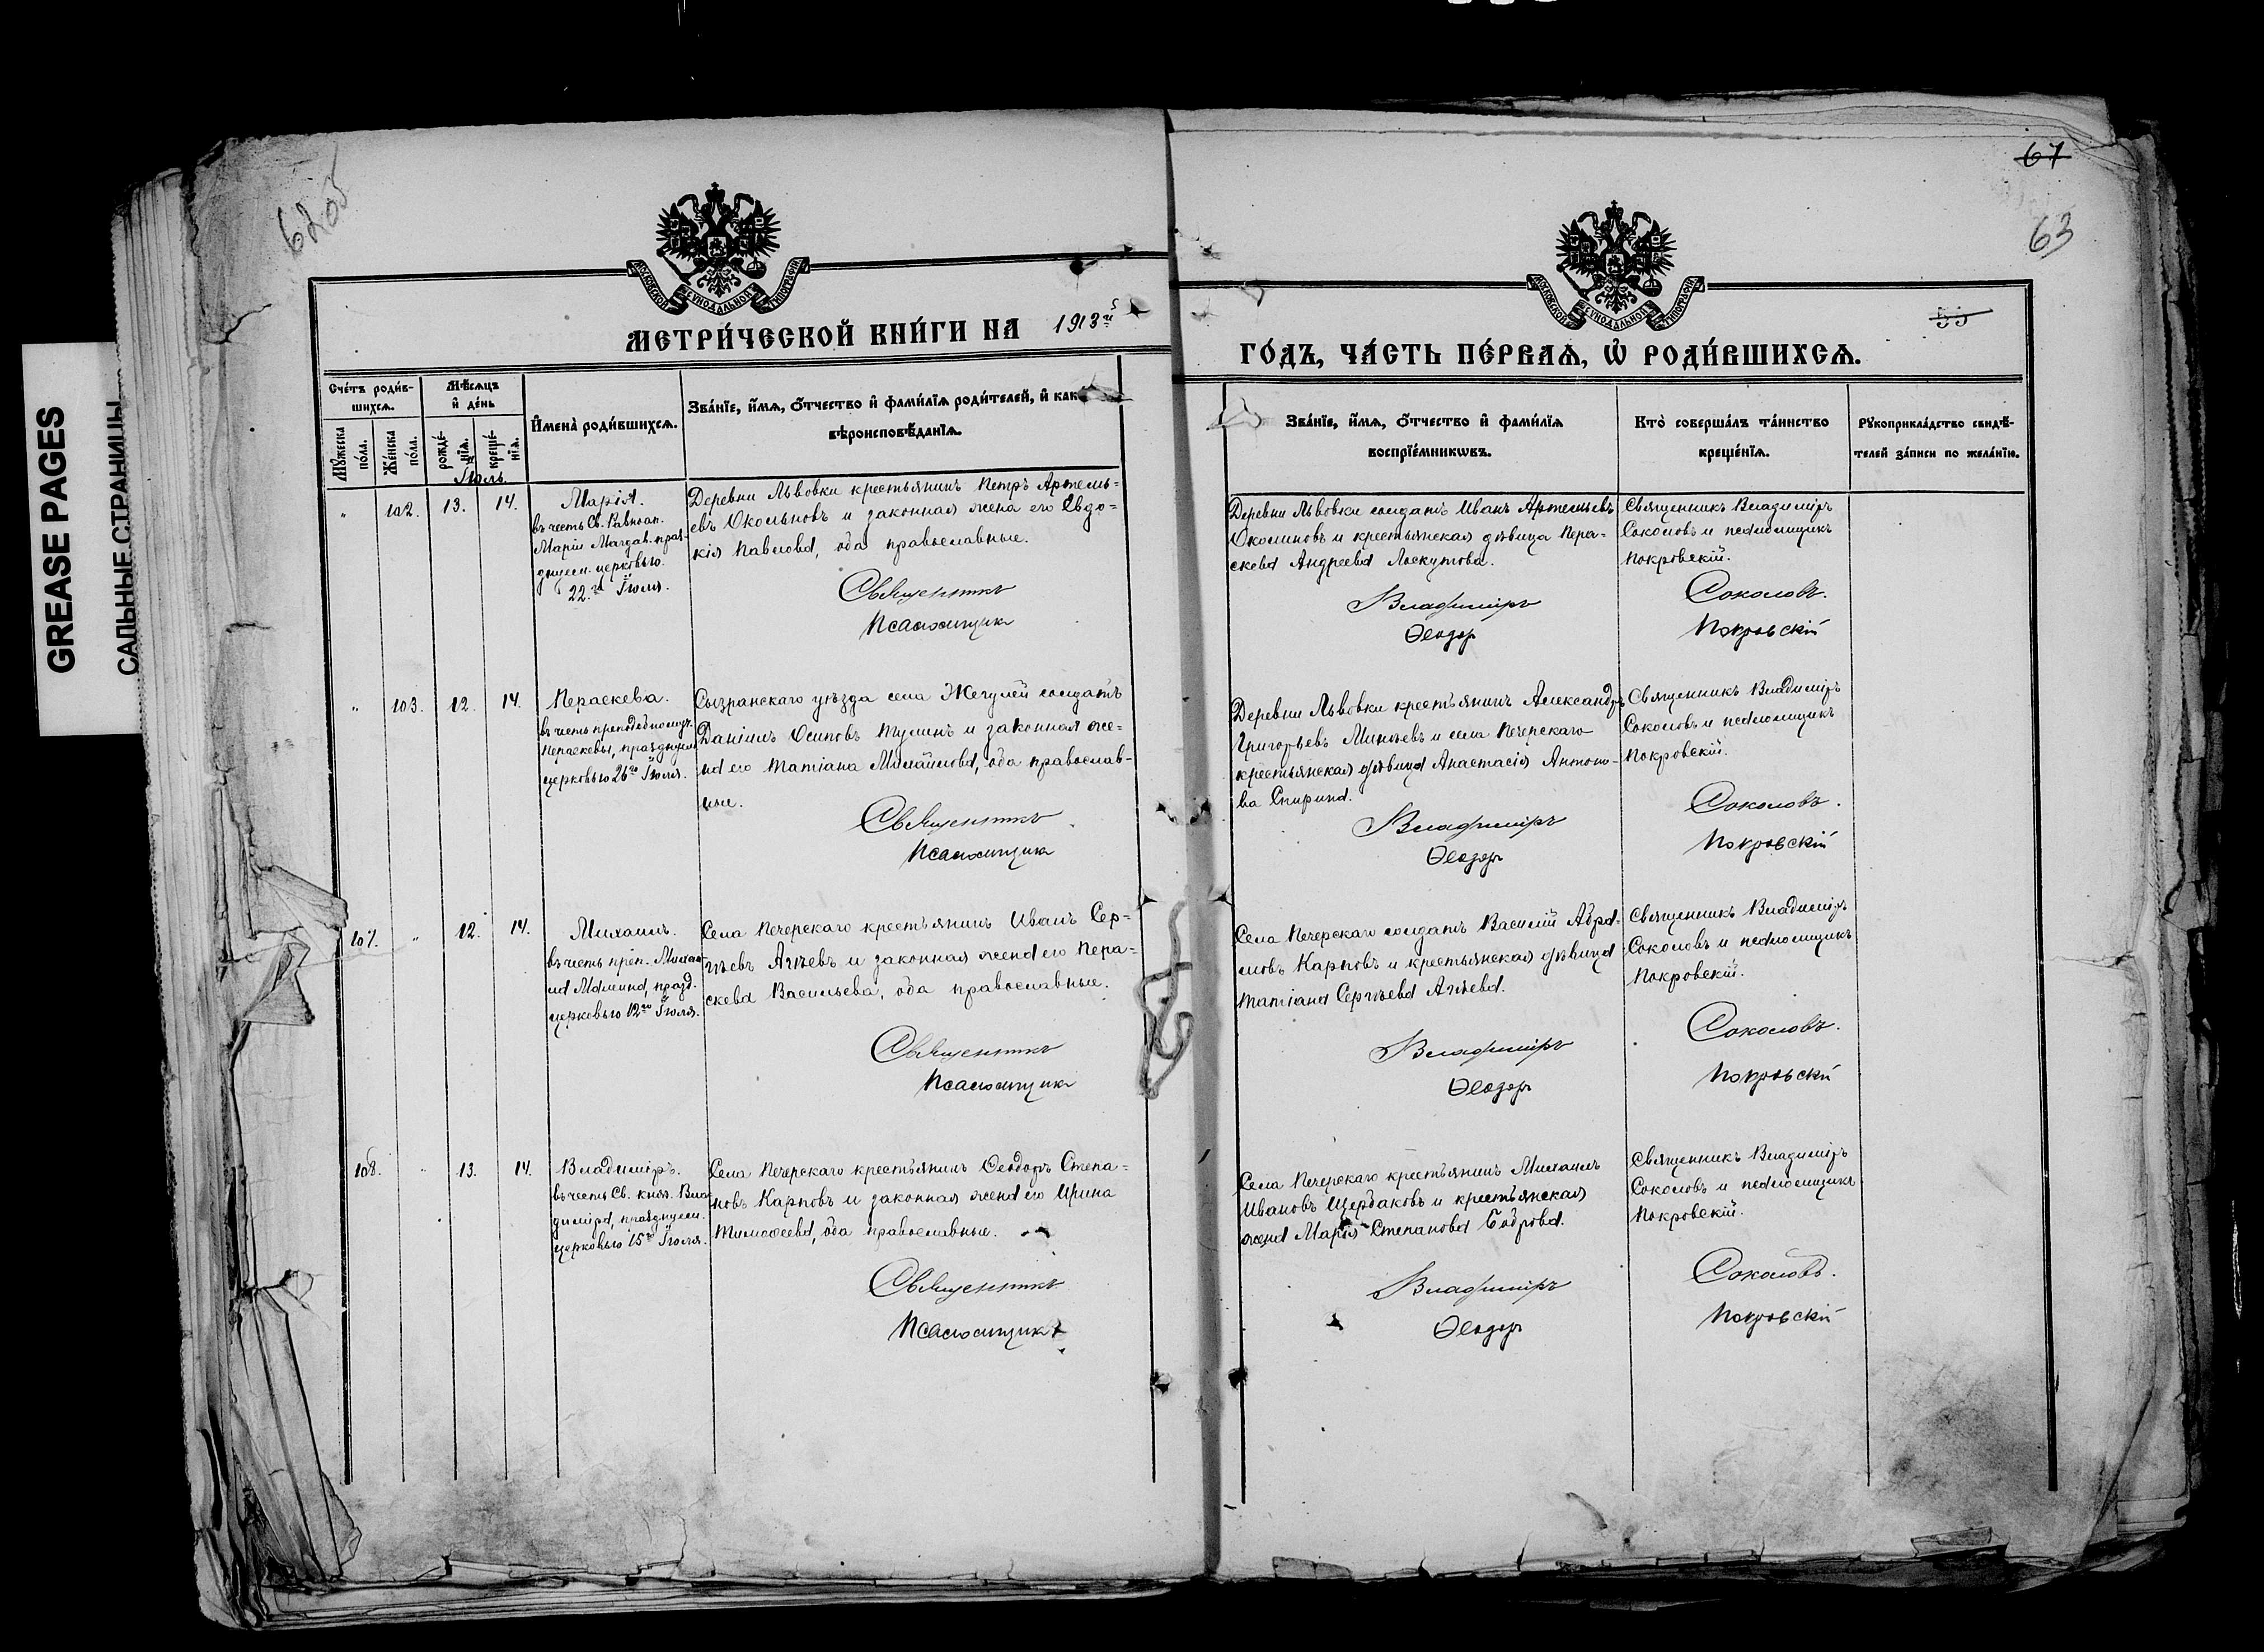 GREASE PAGES
САЛЬНЫЕ СТРАНИЦЫ
67
63
55
МОСКОВСКОЙ СѴНОДАЛЬНОЙ ТИПОГРАФІИ
МОСКОВСКОЙ СѴНОДАЛЬНОЙ ТИПОГРАФІИ
МЕТРИ́ЧЕСКОЙ КНИ́ГИ НА 1913й
ГО́ДЪ, ЧА́СТЬ ПЕ́РВАѦ, Ѡ РОДИ́ВШИХСѦ.
Сче́тъ роди́в-
шихсѧ.
Мꙋжеска по́ла.
Же́нска по́ла.
Мѣ́сѧцъ
и де́нь
рожде́-
нїѧ.
креще́-
нїѧ.
И҆мена̀ роди́вшихсѧ.
Зва́нїе, и҆́мѧ, ѻ҆́тчество и҆ фами́лїѧ роди́телей, и҆ как
вѣроисповѣ́данїѧ.
Зва́нїе, и҆́мѧ, ѻ҆́тчество и҆ фами́лїѧ
воспрїе́мникѡвъ.
Кто̀ соверша́лъ та́инство
креще́нїѧ.
Рꙋкоприкла́дство свидѣ́-
телей за́писи по жела́нїю.
Іюль.
" 102. 13. 14.
Марія.
въ честь Св. Равноап.
Маріи Магдал. праз-
днуем. церковью
22го Іюля.
Деревни Львовки крестьянинъ Петръ Артемь-
евъ Окольновъ и законная жена его Евдо-
кія Павлова, оба православные.
Священникъ
Псаломщикъ
Деревни Львовки солдатъ Иванъ Артемьевъ
Околиновъ и крестьянская дѣвица Пера-
скева Андреева Лоскутова.
Владиміръ
Ѳеодоръ
Священникъ Владиміръ
Соколовъ и псаломщикъ
Покровскій.
Соколовъ.
Покровскій
" 103. 12. 14.
Перaскева.
въ честь преподобномуч.
Перaскевы, празднуем.
церковью 26го Іюля.
Сызранскаго уѣзда села Жегулей солдатъ
Даніилъ Осиповъ Тулинъ и законная же-
на его Татіана Михайлова, оба православ-
ные.
Священникъ
Псаломщикъ
Деревни Львовки крестьянинъ Александръ
Григорьевъ Минѣевъ и села Печерскаго
крестьянская дѣвица Анастасія Антоно-
ва Спирина.
Владиміръ
Ѳеодоръ
Священникъ Владиміръ
Соколовъ и псаломщикъ
Покровскій.
Соколовъ.
Покровскій
107. " 12. 14.
Михаилъ.
въ честь преп. Михаи-
ла Малеина, празд.
церковью 12го Іюля.
Села Печерскаго крестьянинъ Иванъ Сер-
гѣевъ Агѣевъ и законная жена его Пера-
скева Васильева, оба православные.
Священникъ
Псаломщикъ
Села Печерскаго солдатъ Василій Абра-
мовъ Карповъ и крестьянская дѣвица
Татіана Сергѣева Агѣева.
Владиміръ
Ѳеодоръ
Священникъ Владиміръ
Соколовъ и псаломщикъ
Покровскій.
Соколовъ.
Покровскій
108. " 13. 14.
Владиміръ.
въ честь Св. княз. Вла-
диміра, празднуем.
церковью 15го Іюля.
Села Печерскаго крестьянинъ Ѳеодоръ Степа-
новъ Карповъ и законная жена его Ирина
Тимоѳеева, оба православные.
Священникъ
Псаломщикъ
Села Печерскаго крестьянинъ Михаилъ
Ивановъ Щербаковъ и крестьянская
жена Марія Степанова Бобровa.
Владиміръ
Ѳеодоръ
Священникъ Владиміръ
Соколовъ и псаломщикъ
Покровскій.
Соколовъ.
Покровскій